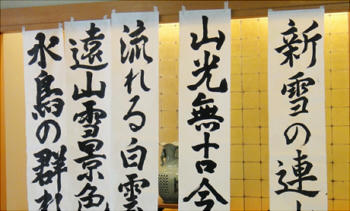 新雪の連
山光無古今
流れる白雲
遠山雪景色
水鳥の群